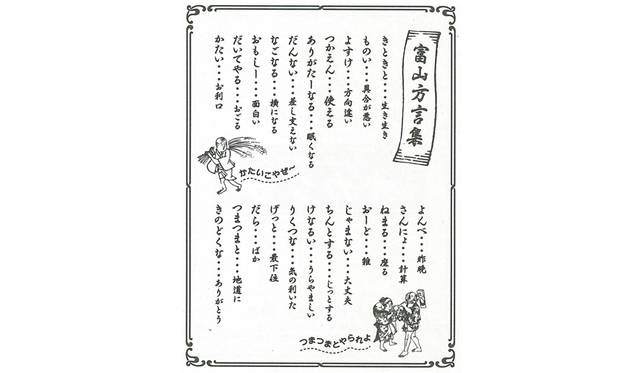 富山方言集
きときと・・・生き生き
ものい・・・具合が悪い
よすけ・・・方向違い
つかえん・・・使える
ありがたーなる・・・眠くなる
だんない・・・差し支えない
なごなる・・・横になる
おもしー・・・面白い
だいてやる・・・おごる
かたい・・・お利口
かたいこやぜ〜
よんべ・・・昨晩
さんによ・・・計算
ねまる・・・座る
おーど・・・雑
じゃまない・・・大丈夫
ちんとする・・・じっとする
けなるい・・・うらやましい
りくつな・・・気の利いた
げっと・・・最下位
だら・・・ばか
つまつまと・・・地道に
きのどくな・・・ありがとう
つまつまとやられよ